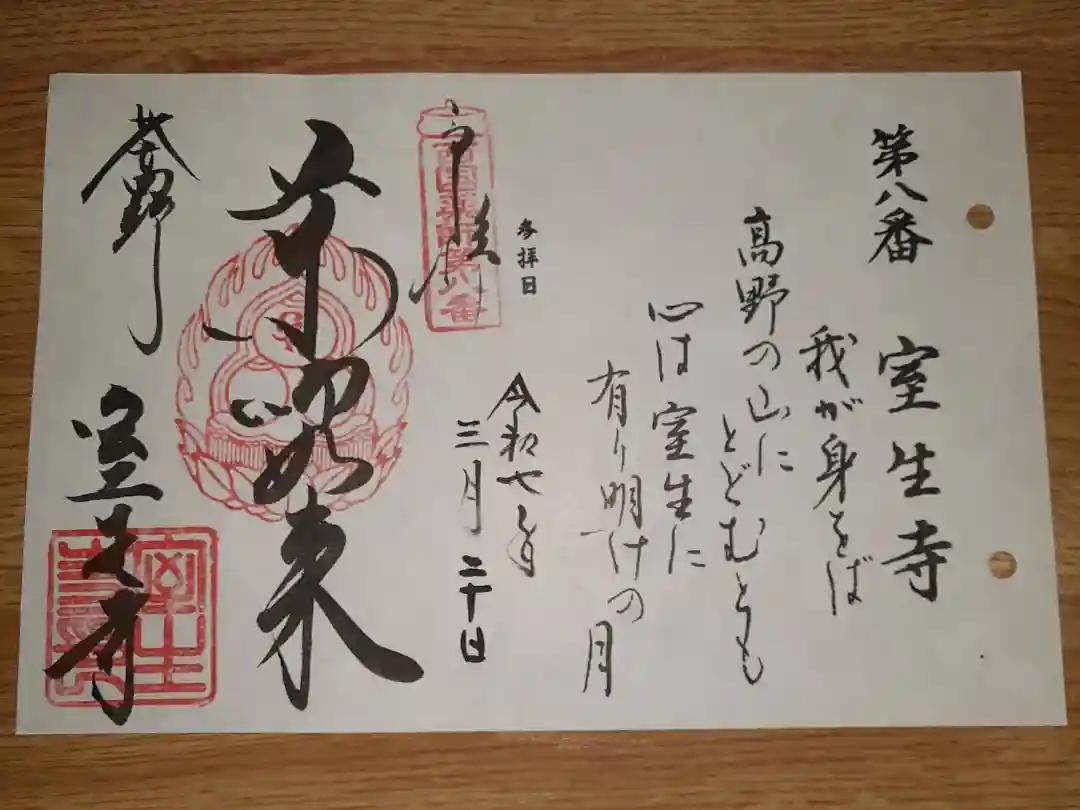 第八番 室生寺
我が身をば
高野の山に
とどむとも
心は室生に
有り明けの月
参拝日
令和七年
三月二十日
奉拝
西国薬師第八番
薬師如来
室生寺